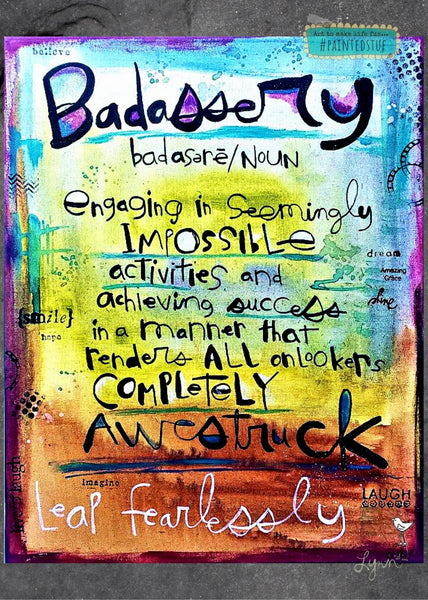 Art to make life fun...
#PAINTEDSTUF
believe
Badassery
badasərē/NOUN
engaging in seemingly
IMPOSSIBLE
activities and
achieving success
in a manner that
renders ALL onlookers
COMPLETELY
AWEstruck
Leap fearlessly
dream
Amazing
Grace
shine
{smile}
hope
imagine
LAUGH
Lynn